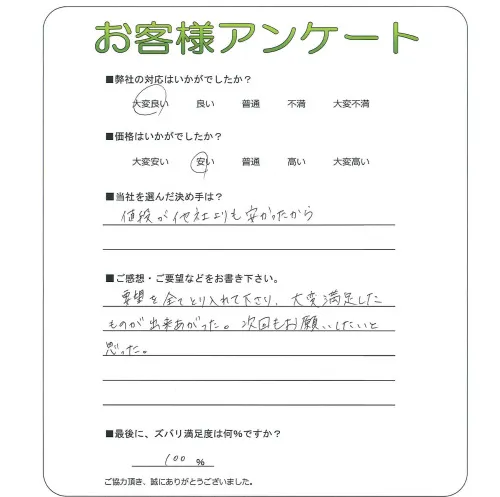 お客様アンケート
■弊社の対応はいかがでしたか？
大変良い 良い 普通 不満 大変不満
■価格はいかがでしたか？
大変安い 安い 普通 高い 大変高い
■当社を選んだ決め手は？
値段が他社よりも安かったから
■ご感想・ご要望などをお書き下さい。
要望を全てとり入れて下さり、大変満足した
ものが出来あがった。次回もお願いしたいと
思った。
■最後に、ズバリ満足度は何%ですか？
100 %
ご協力頂き、誠にありがとうございました。